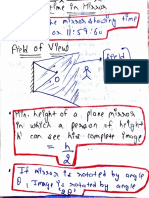 Time in Mirror
the mirror showing time
or 11:59:60
Field of View
O
Min. height of a plane mirror
in which a person of height
h can see his complete image
= h
2
If mirror is rotated by angle
θ, Image is rotated by angle
"2θ"